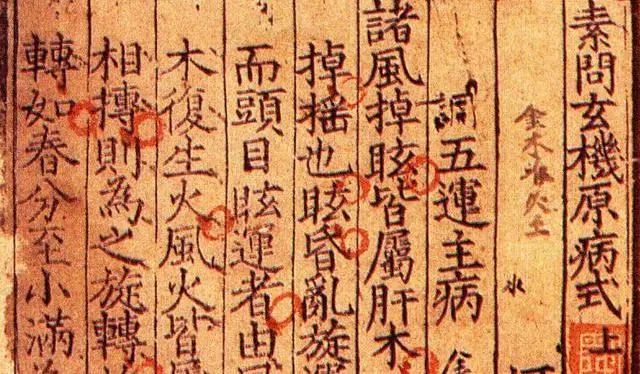 素問玄機原病式上
金木火土
水
五運主病金
諸風掉眩皆屬肝木
掉摇也眩昏亂旋運
而頭目眩運者由
木復生火風火皆
相摶則為之旋轉
轉如春分至小滿